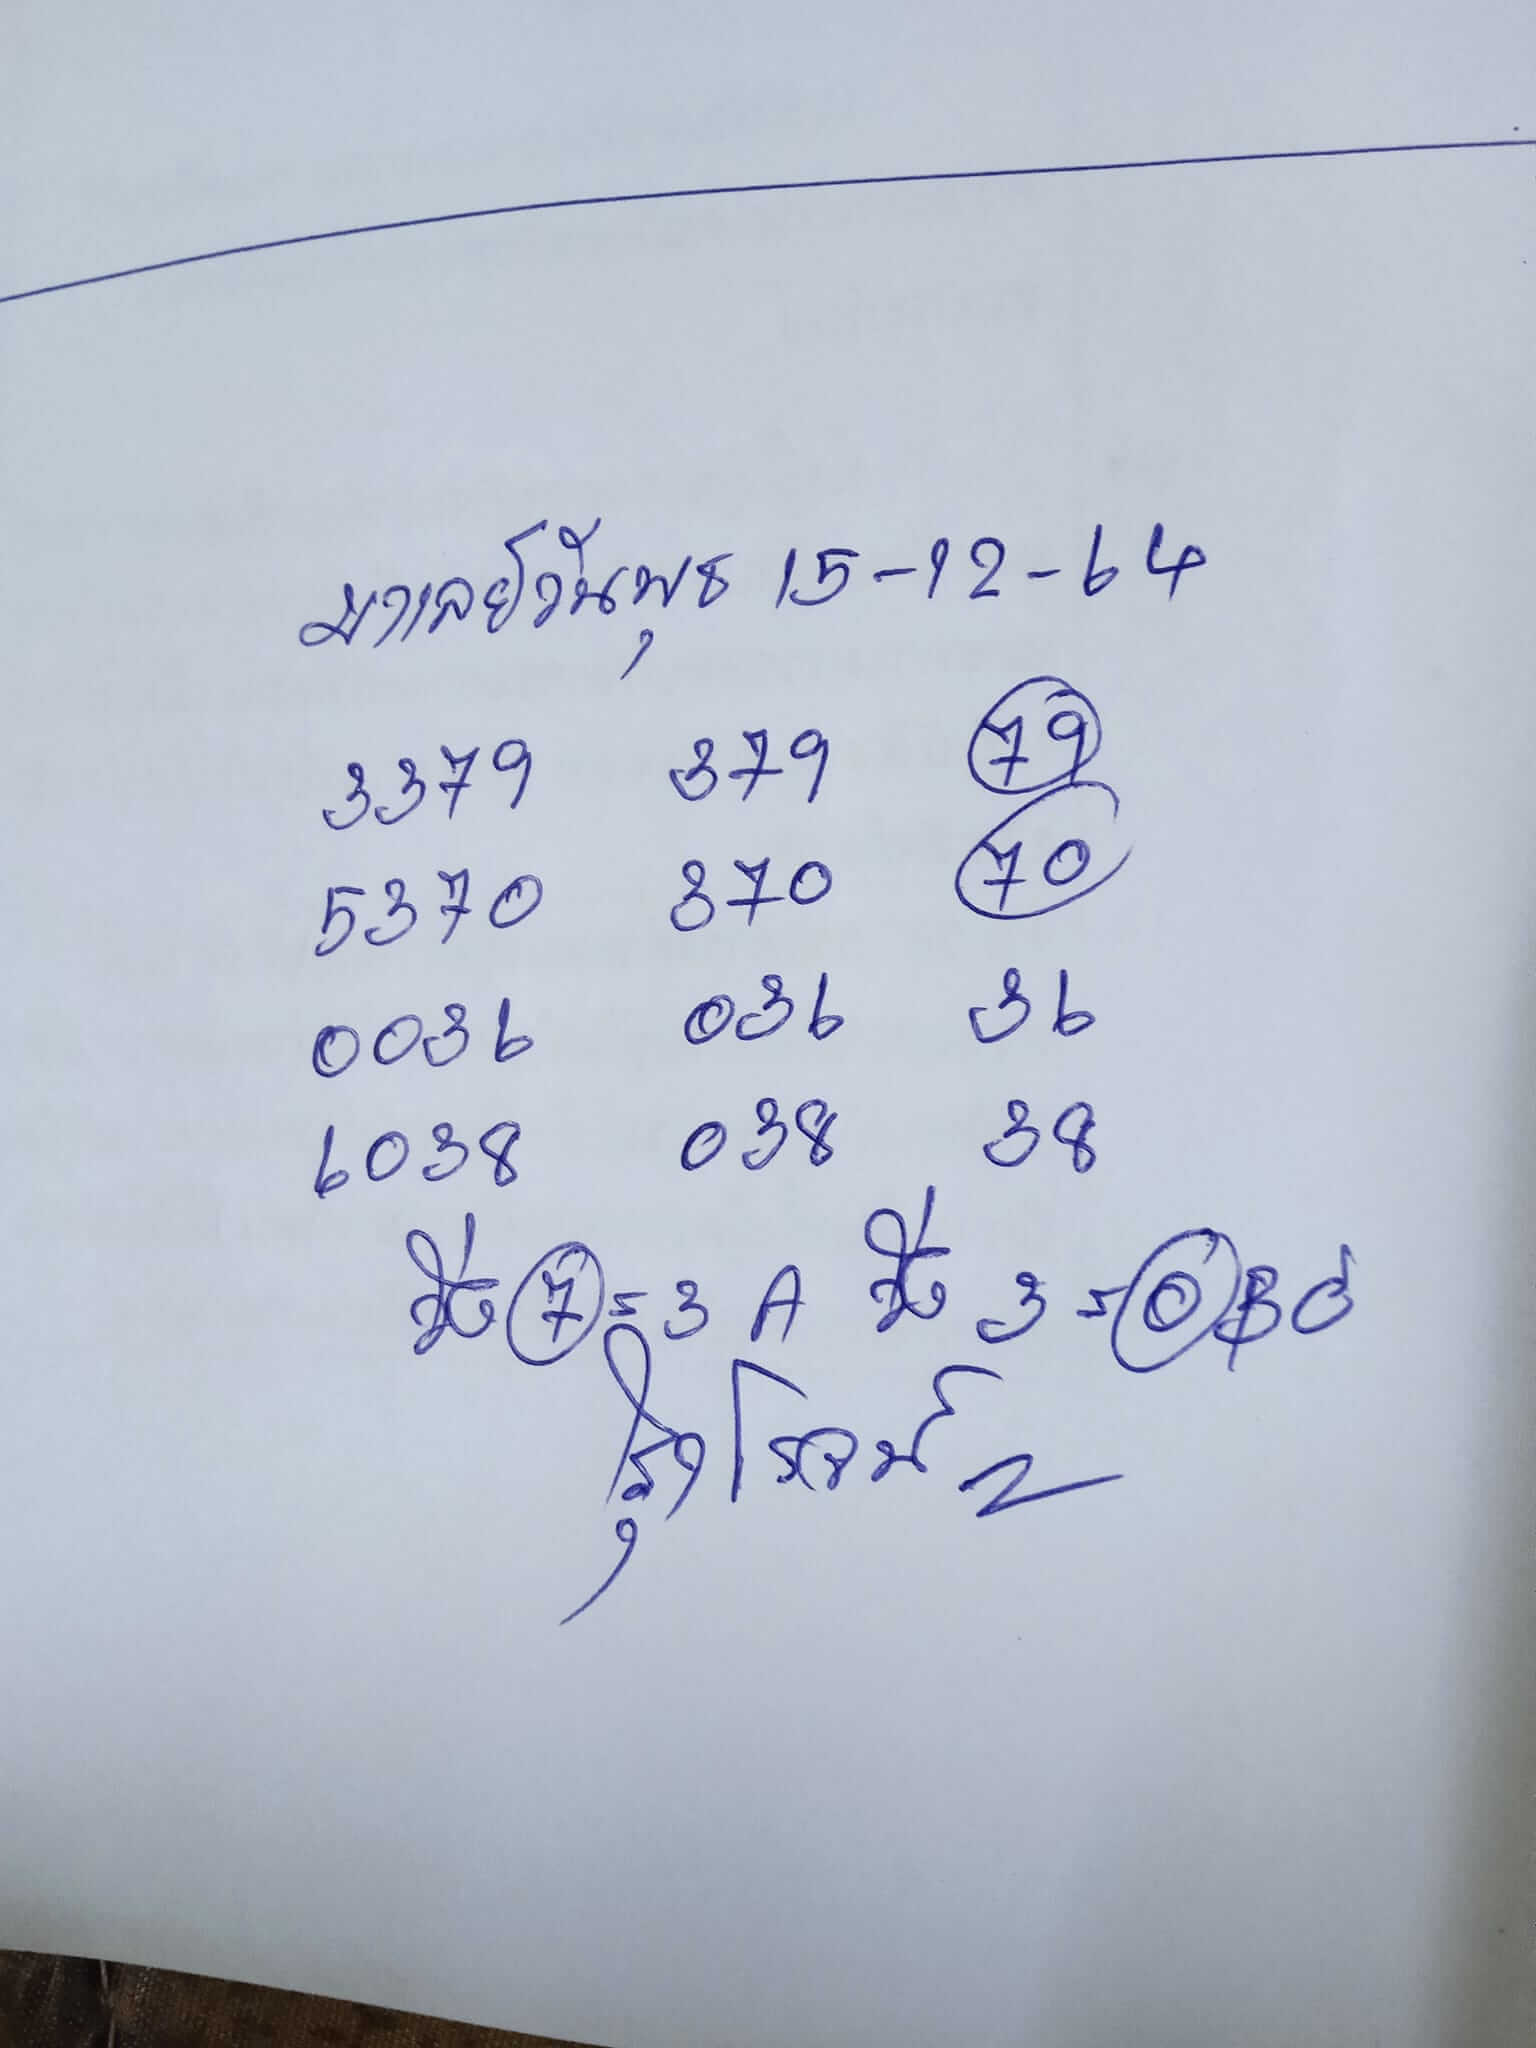 มาเลย์วันพุธ 15-12-64
3379 379 79
5370 370 70
0036 036 36
6038 038 38
7=3 A 3=0 B
รุ่งโรจน์